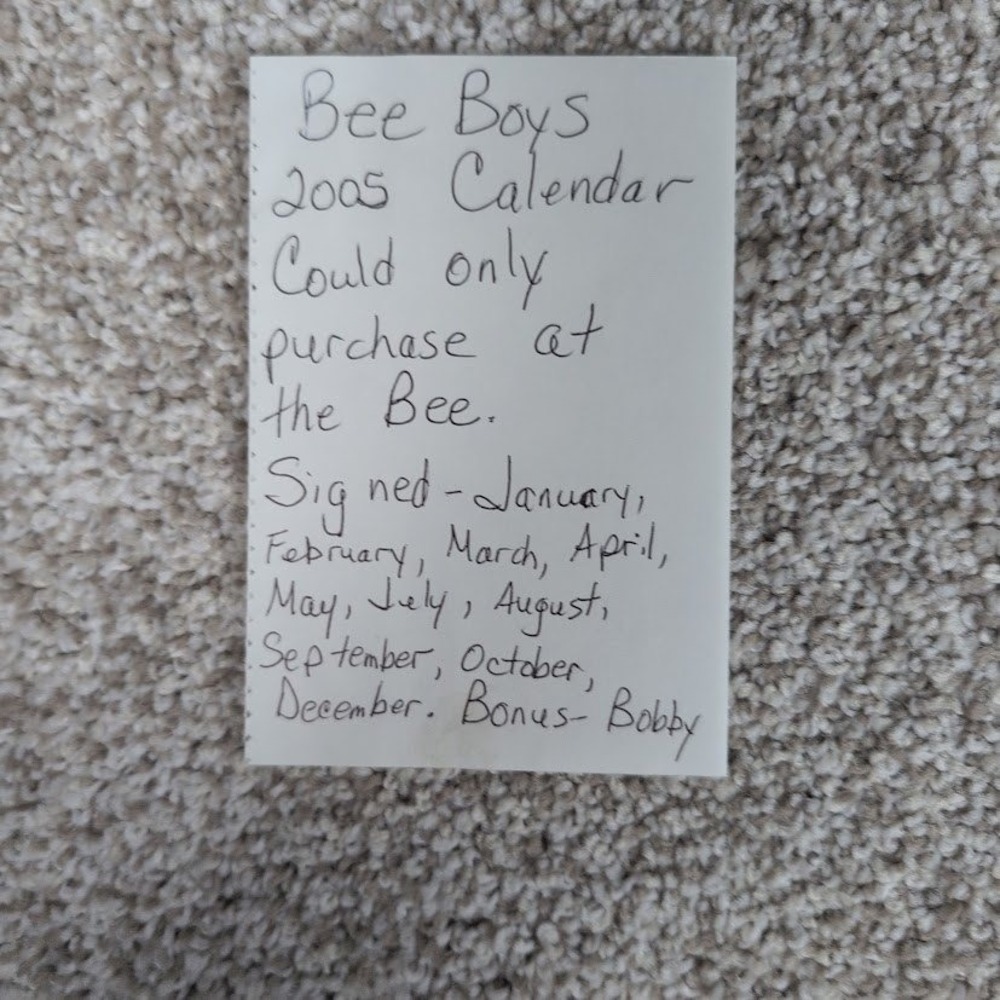 Bee Boys
2005 Calendar
Could only
purchase at
the Bee.
Signed - January,
February, March, April,
May, July, August,
September, October,
December. Bonus - Bobby